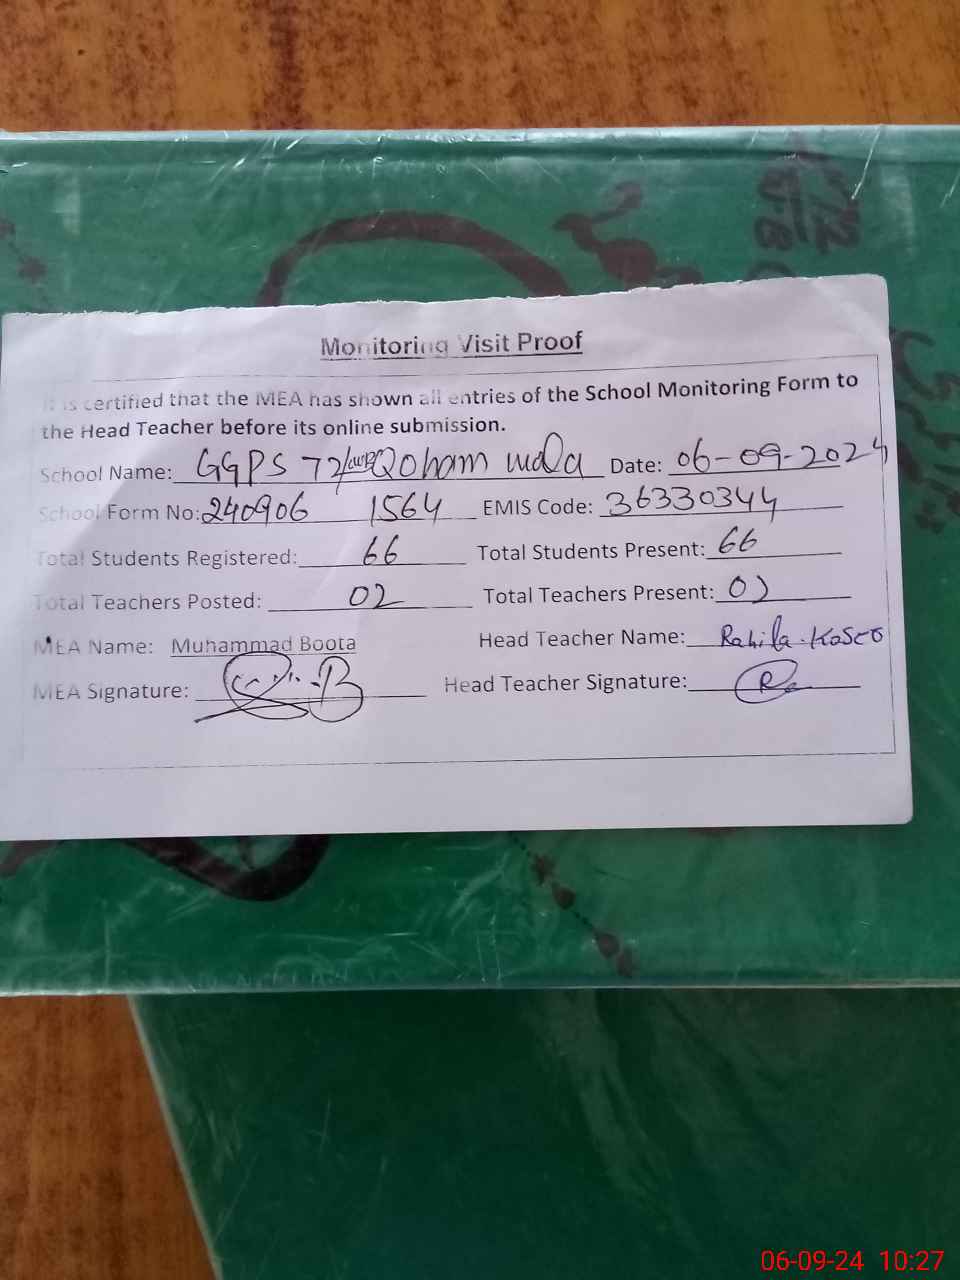 Monitoring Visit Proof
It is certified that the MEA has shown all entries of the School Monitoring Form to
the Head Teacher before its online submission.
School Name: GGPS 72/ Qoham wala Date: 06-09-2024
School Form No: 240906 1564 EMIS Code: 36330344
Total Students Registered: 66 Total Students Present: 66
Total Teachers Posted: 02 Total Teachers Present: 02
MEA Name: Muhammad Boota Head Teacher Name: Rahila Kosco
MEA Signature: Head Teacher Signature:
06-09-24 10:27